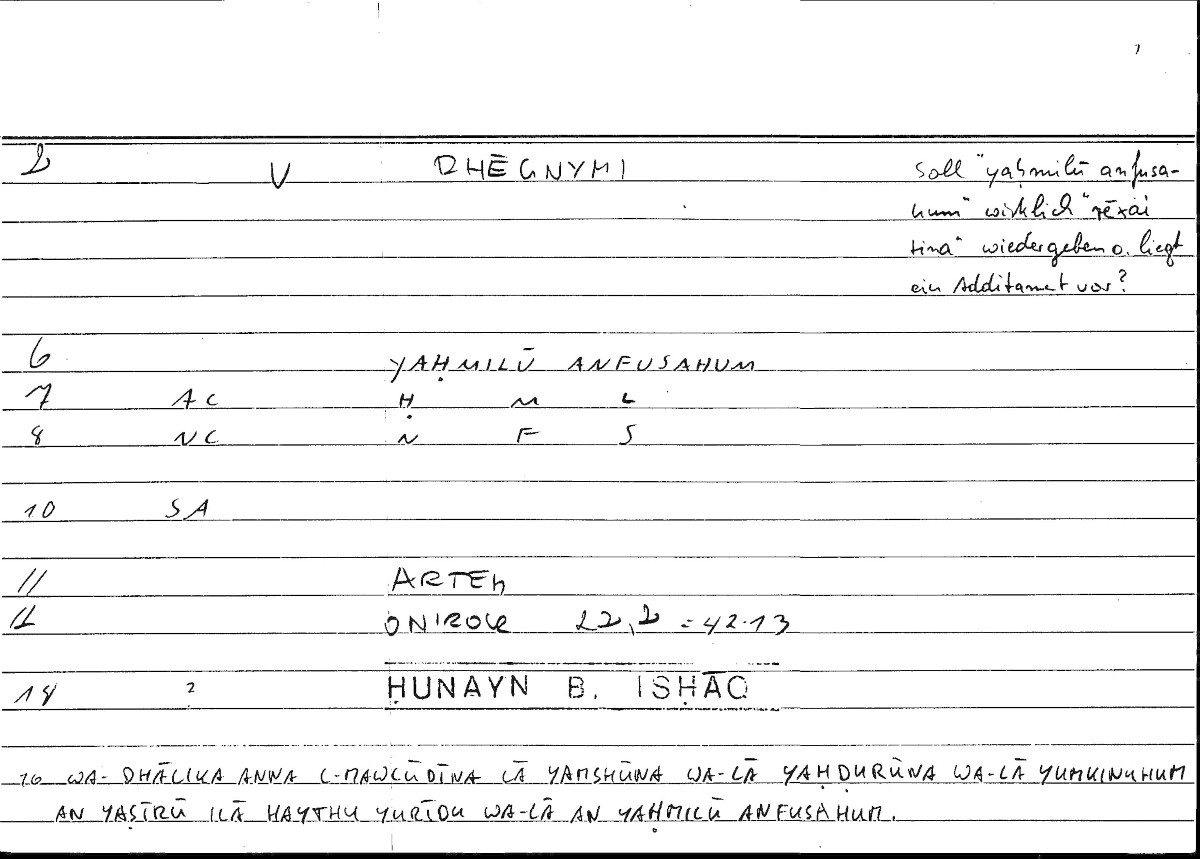 2 V RHĒGNYMI
soll "yaḥmilū anfusa-
hum" wirklich "rēxai
tina" wiedergeben o. liegt
ein Additament vor?
6 YAḤMILŪ ANFUSAHUM
7 AC Ḥ M L
8 NC N F S
10 SA
11 ARTEM
12 ONIROCR 22,2 = 42.13
14 2 ḤUNAYN B. ISḤĀQ
16 WA-DHĀLIKA ANNA L-MAWLŪDĪNA LĀ YAMSHŪNA WA-LĀ YAḤḌURŪNA WA-LĀ YUMKINUHUM
AN YAṢĪRŪ ILĀ HAYTHU YURĪDU WA-LĀ AN YAḤMILŪ ANFUSAHUM.